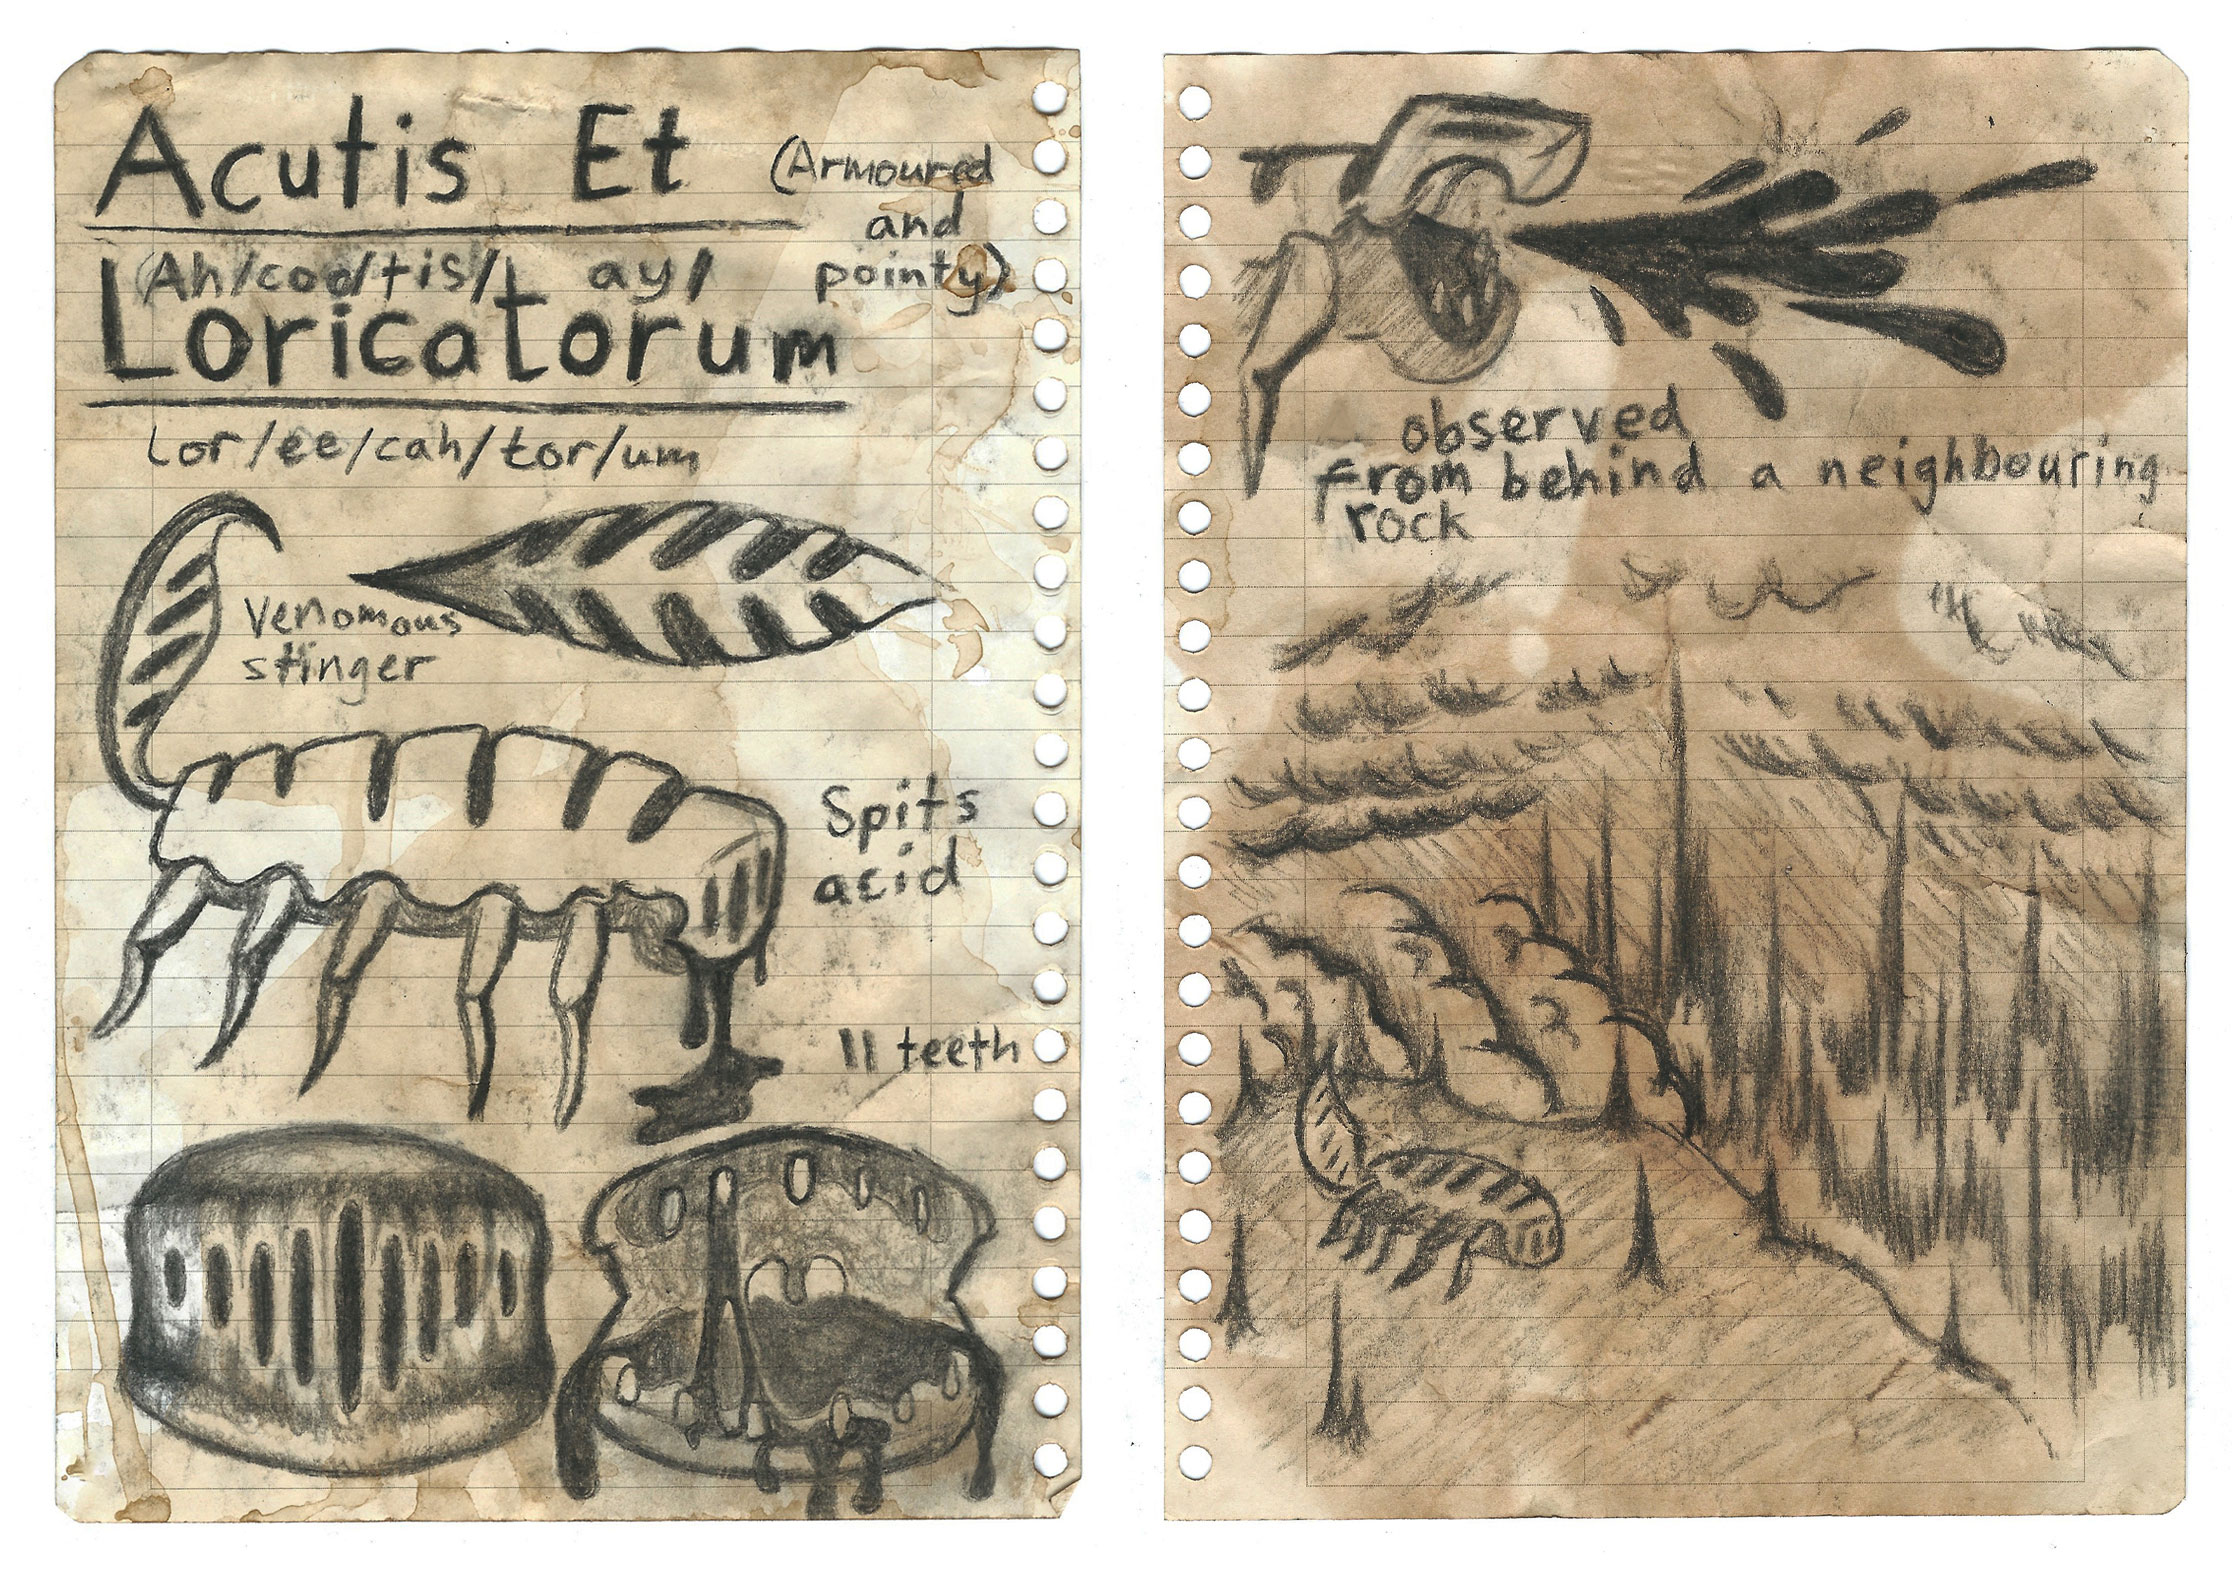 Acutis Et
(Armoured
and
pointy)
(Ah/coo/tis/t ay/
Loricatorum
Lor/ee/cah/tor/um
Venomous
stinger
Spits
acid
11 teeth
observed
from behind a neighbouring
rock